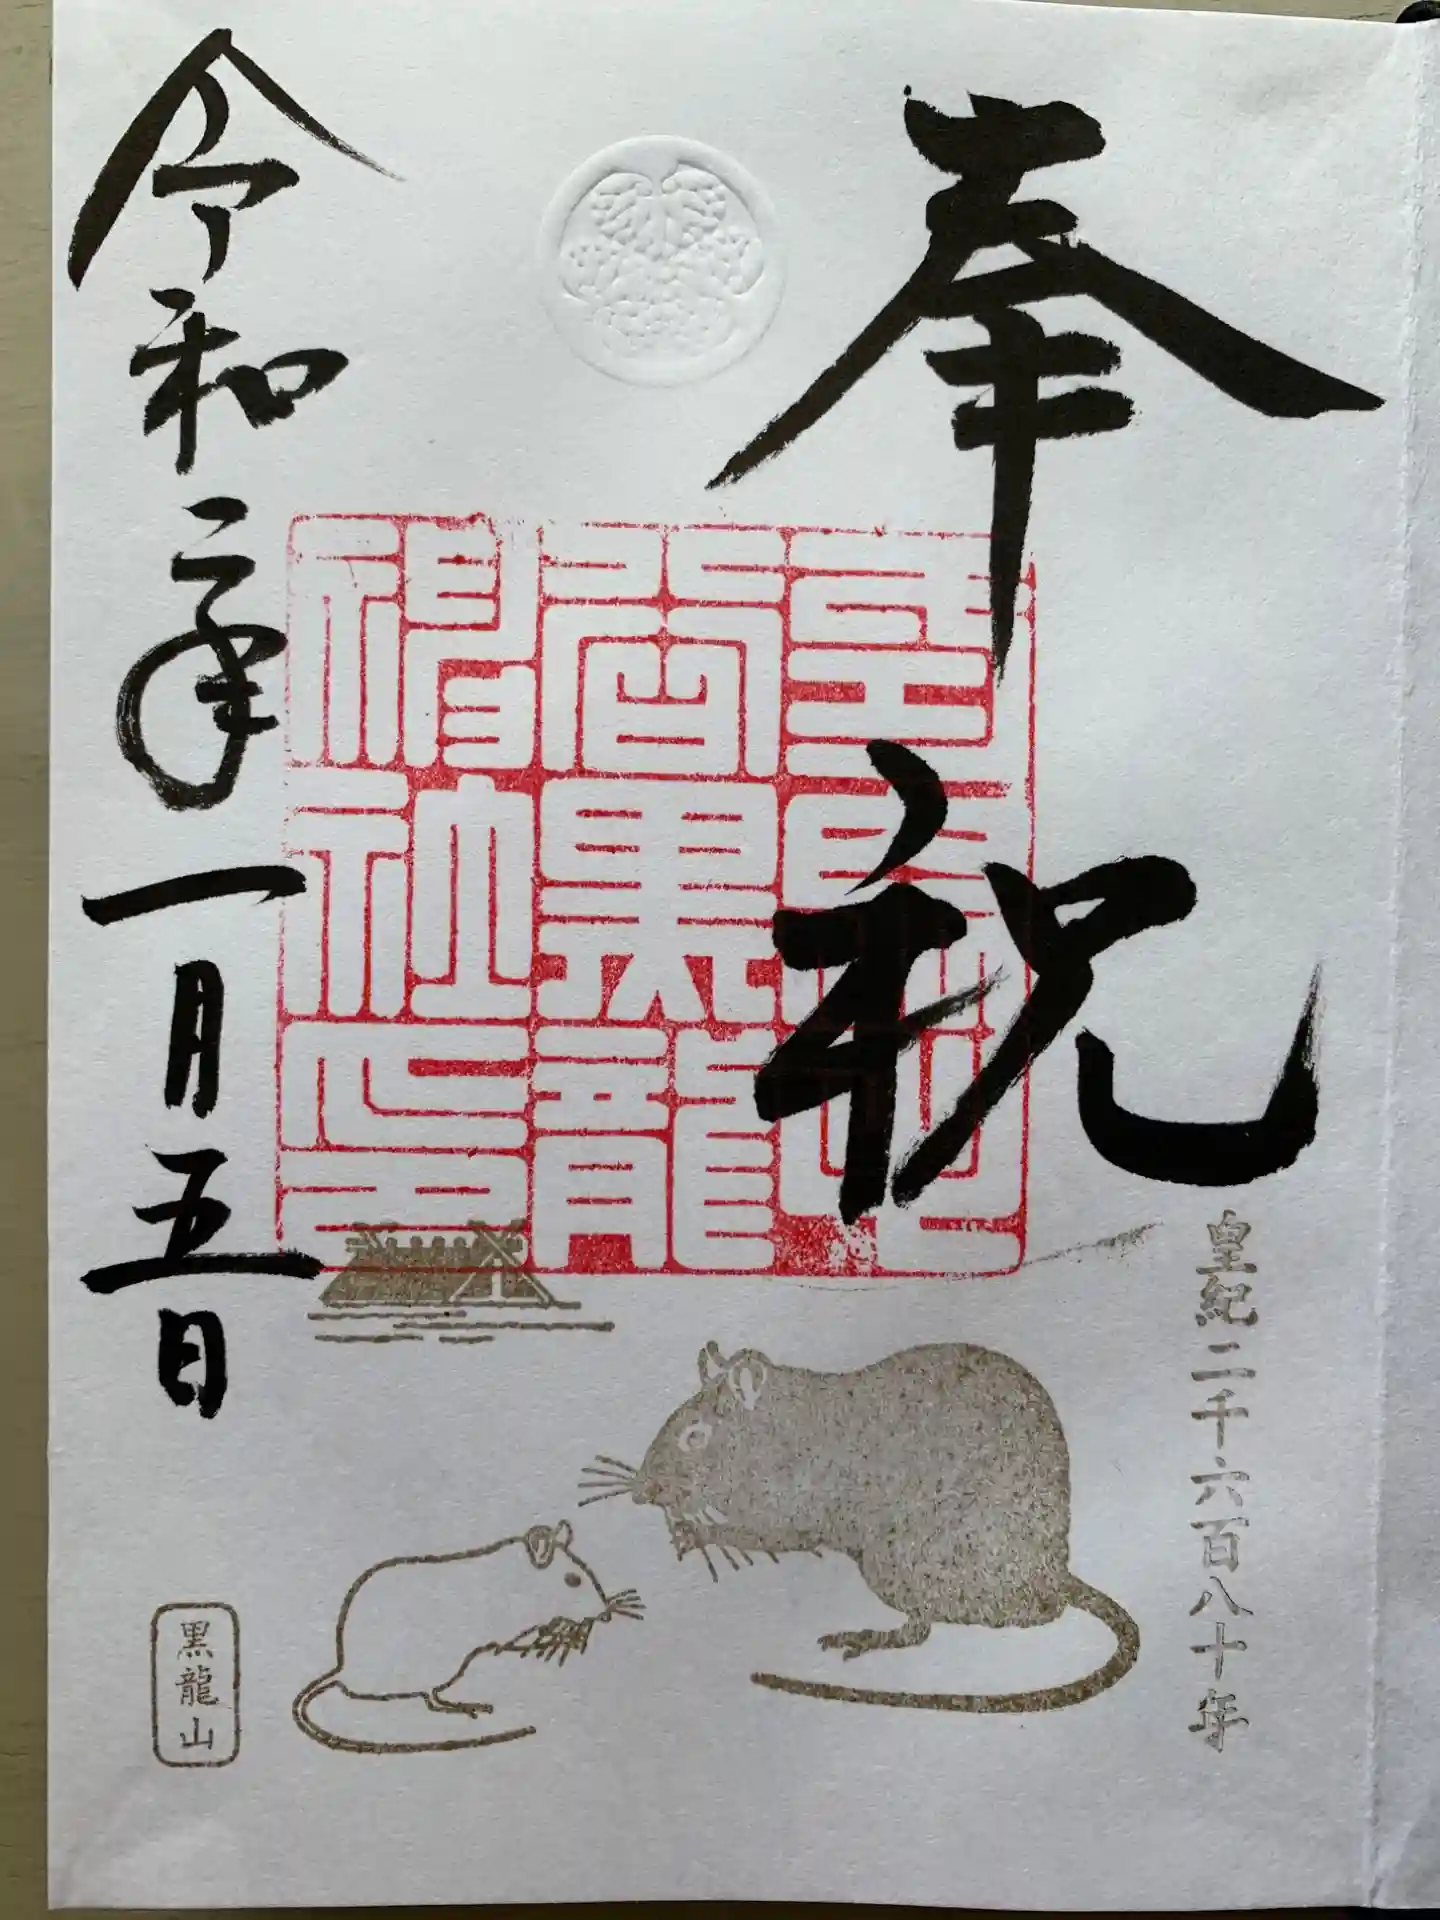 奉祝
皇紀二千六百八十年
谷黒龍
神社印
令和二年一月五日
黒龍山